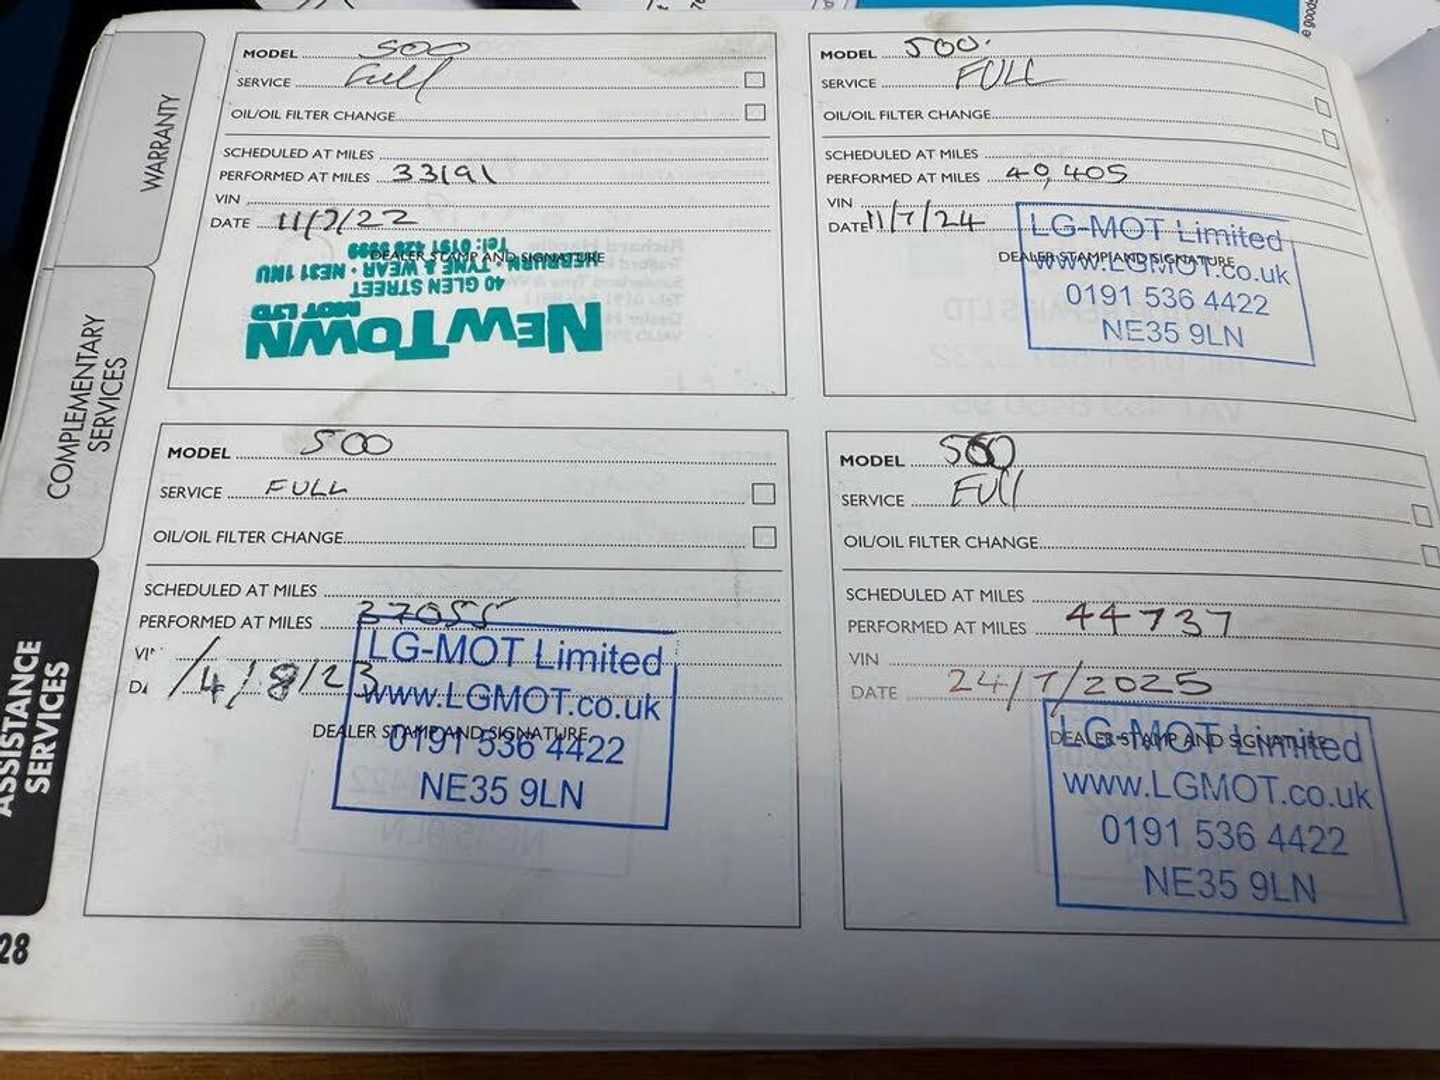 WARRANTY
COMPLEMENTARY
SERVICES
ASSISTANCE
SERVICES
28
MODEL 500
SERVICE Full
OIL/OIL FILTER CHANGE
SCHEDULED AT MILES
PERFORMED AT MILES 33191
VIN
DATE 11/7/22
DEALER STAMP AND SIGNATURE
NEWTOWN
MOT LTD
40 GLEN STREET
HEBBURN • TYNE & WEAR • NE31 1NU
MODEL 500.
SERVICE FULL
OIL/OIL FILTER CHANGE
SCHEDULED AT MILES
PERFORMED AT MILES 40,405
VIN
DATE 11/7/24
DEALER STAMP AND SIGNATURE
LG-MOT Limited
www.LGMOT.co.uk
0191 536 4422
NE35 9LN
MODEL 500
SERVICE FULL
OIL/OIL FILTER CHANGE
SCHEDULED AT MILES
PERFORMED AT MILES 37055
/4/8/23
DEALER STAMP AND SIGNATURE
LG-MOT Limited
www.LGMOT.co.uk
0191 536 4422
NE35 9LN
MODEL 500
SERVICE Full
OIL/OIL FILTER CHANGE
SCHEDULED AT MILES
PERFORMED AT MILES 44737
VIN
DATE 24/7/2025
DEALER STAMP AND SIGNATURE
LG-MOT Limited
www.LGMOT.co.uk
0191 536 4422
NE35 9LN